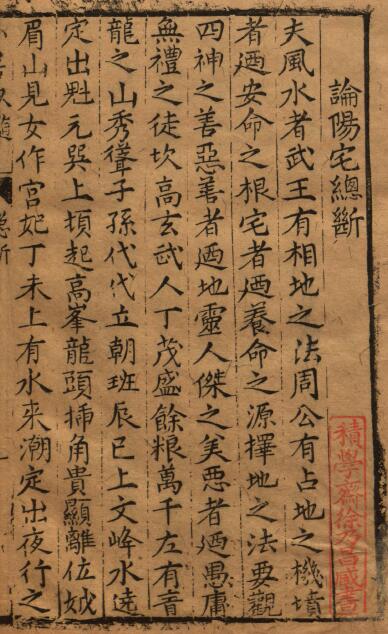 論陽宅總斷
夫風水者武王有相地之法周公有占地之機墳
者廼安命之根宅者廼養命之源擇地之法要觀
四神之善惡善者廼地靈人傑之美惡者廼愚庸
無禮之徒坎高玄武人丁茂盛餘粮萬千左有青
龍之山秀聳子孫代代立朝班辰巳上文峰水遶
定出魁元巽上損起高峯龍頭揷角貴顯離位娥
眉山見女作宮妃丁未上有水來潮定出夜行之
積學齋徐乃昌藏書